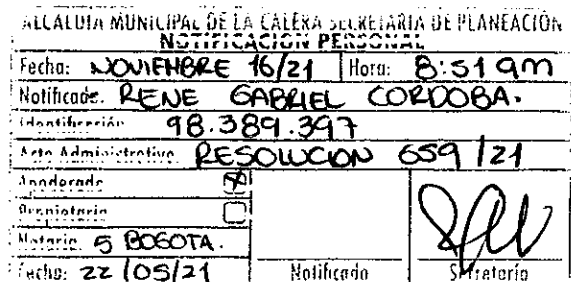 ALCALDIA MUNICIPAL DE LA CALERA SECRETARIA DE PLANEACIÓN
NOTIFICACIÓN PERSONAL
Fecha: NOVIEMBRE 16/21 Hora: 8:51 am
Notificado: RENE GABRIEL CORDOBA.
Identificación 98.389.397
Acto Administrativo RESOLUCION 659 /21
Apoderado
Propietario
Notaria 5 BOGOTA.
Fecha: 22/05/21 Notificado Secretaría